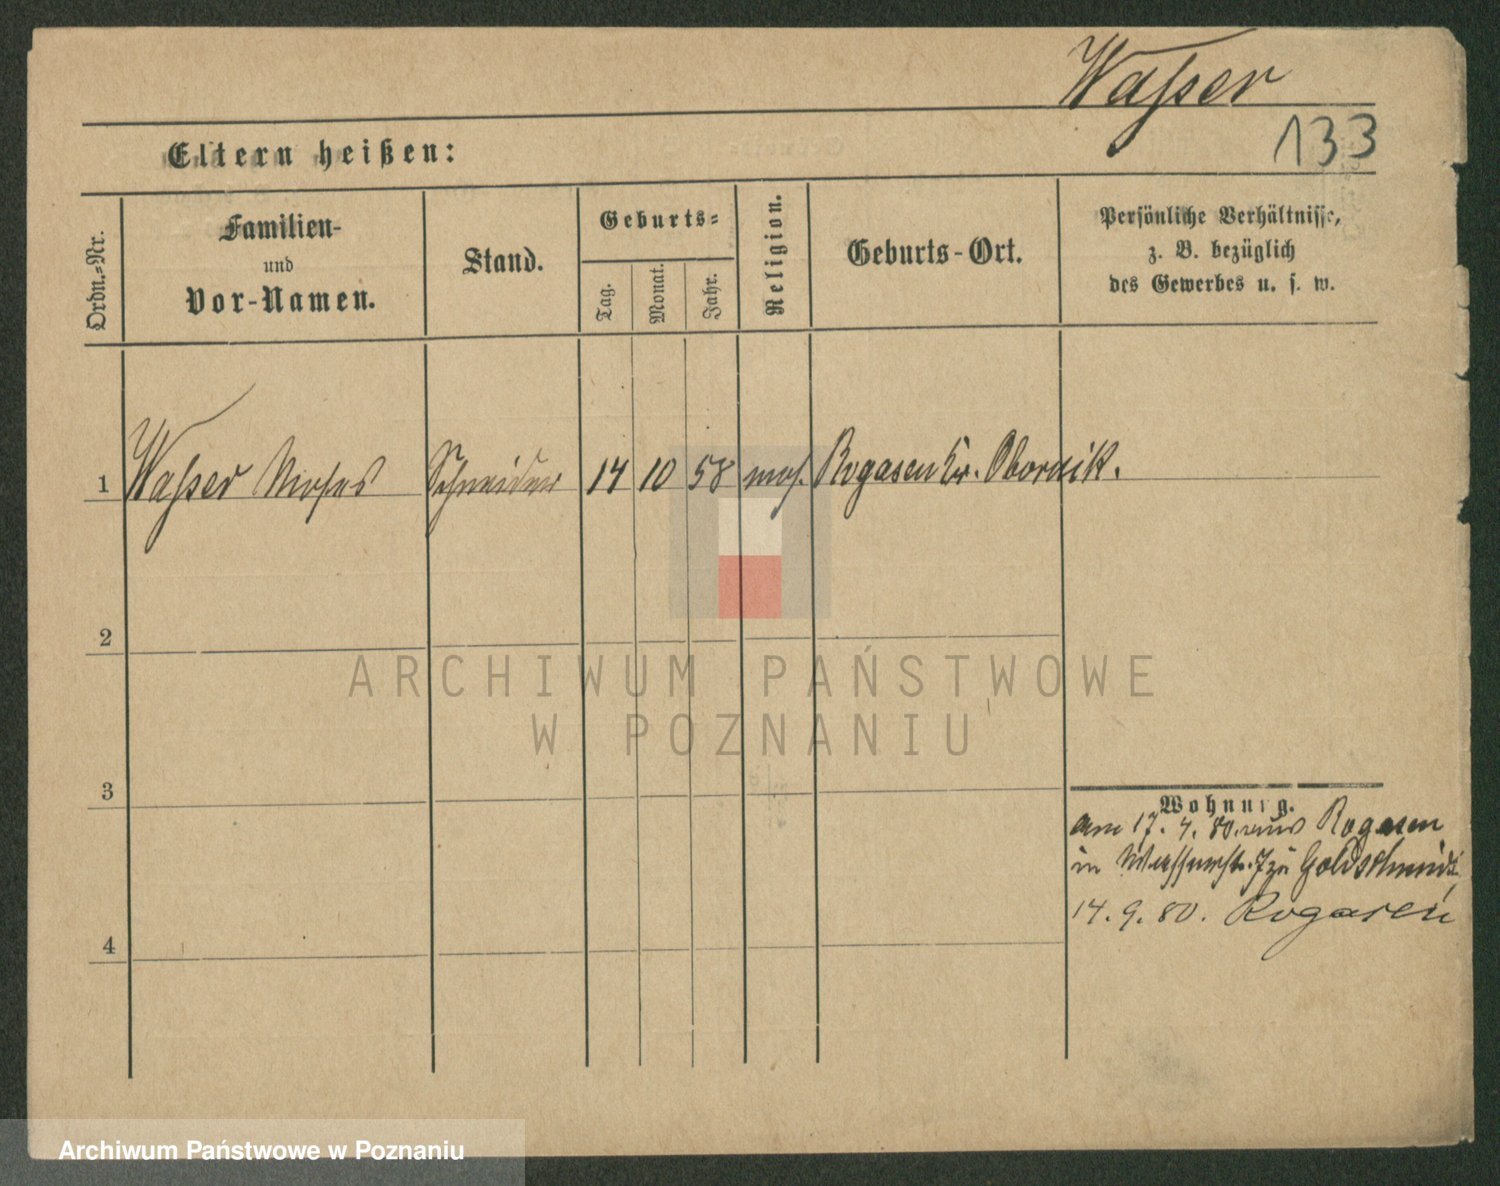 Waſser
133
Eltern heißen:
Ordn.=Nr.
Familien-
und
Vor-Namen.
Stand.
Geburts=
Tag.
Monat.
Jahr.
Religion.
Geburts-Ort.
Persönliche Verhältnisse,
z. B. bezüglich
des Gewerbes u. s. w.
1 Waſser Moses Schneider 14 10 58 mos. Rogasen Kr. Obornik.
2
3
4
Wohnung.
am 17. 4. 80. aus Rogasen
in Wasserstr. 7 zu Goldschmidt
14. 9. 80. Rogasen
ARCHIWUM PAŃSTWOWE
W POZNANIU
Archiwum Państwowe w Poznaniu